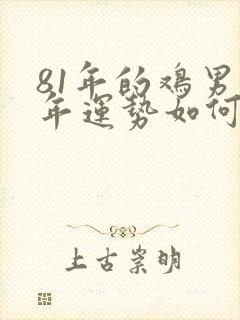 81年的鸡男
年運势如何
上古崇明